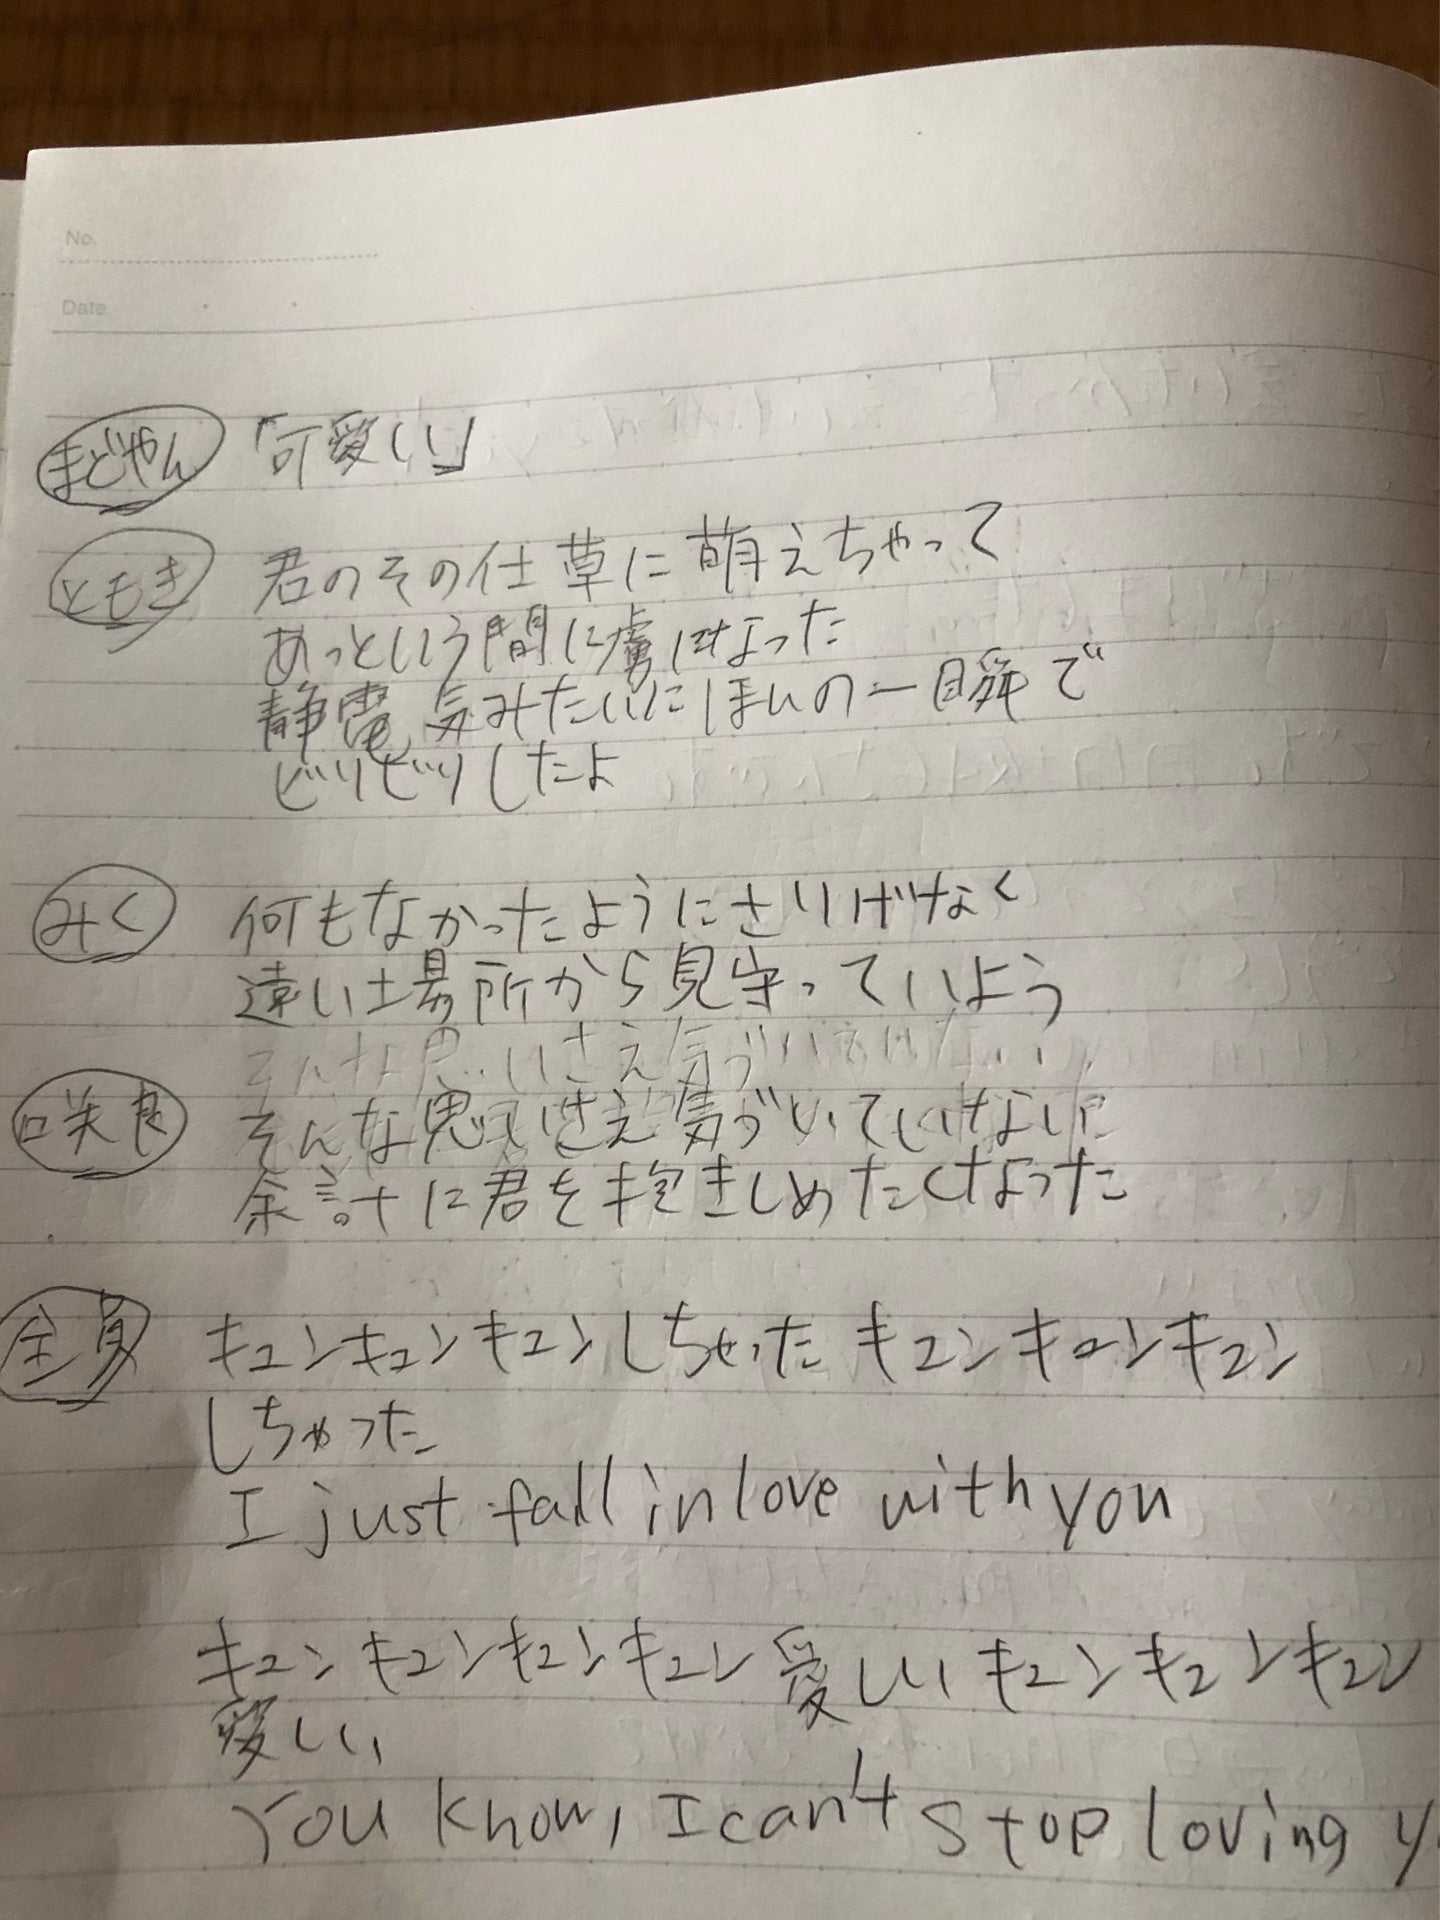 No.
Date
まどやん 「可愛い」
ともき 君のその仕草に萌えちゃって
あっという間に虜になった
静電気みたいにほんの一瞬で
ビリビリしたよ
みく 何もなかったようにさりげなく
遠い場所から見守っていよう
そんな思いさえ気づいていない
咲良 そんな思いさえ気づいていないに
余計に君を抱きしめたくなった
全員 キュンキュンキュンしちゃった キュンキュンキュン
しちゃった
I just fall in love with you
キュンキュンキュンキュン愛しい キュンキュンキュン
愛しい
You know, I can't stop loving